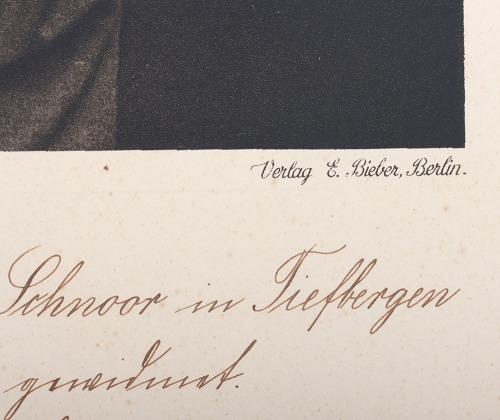 Verlag E. Bieber, Berlin.
Schnoor in Tiefbergen
gewidmet.